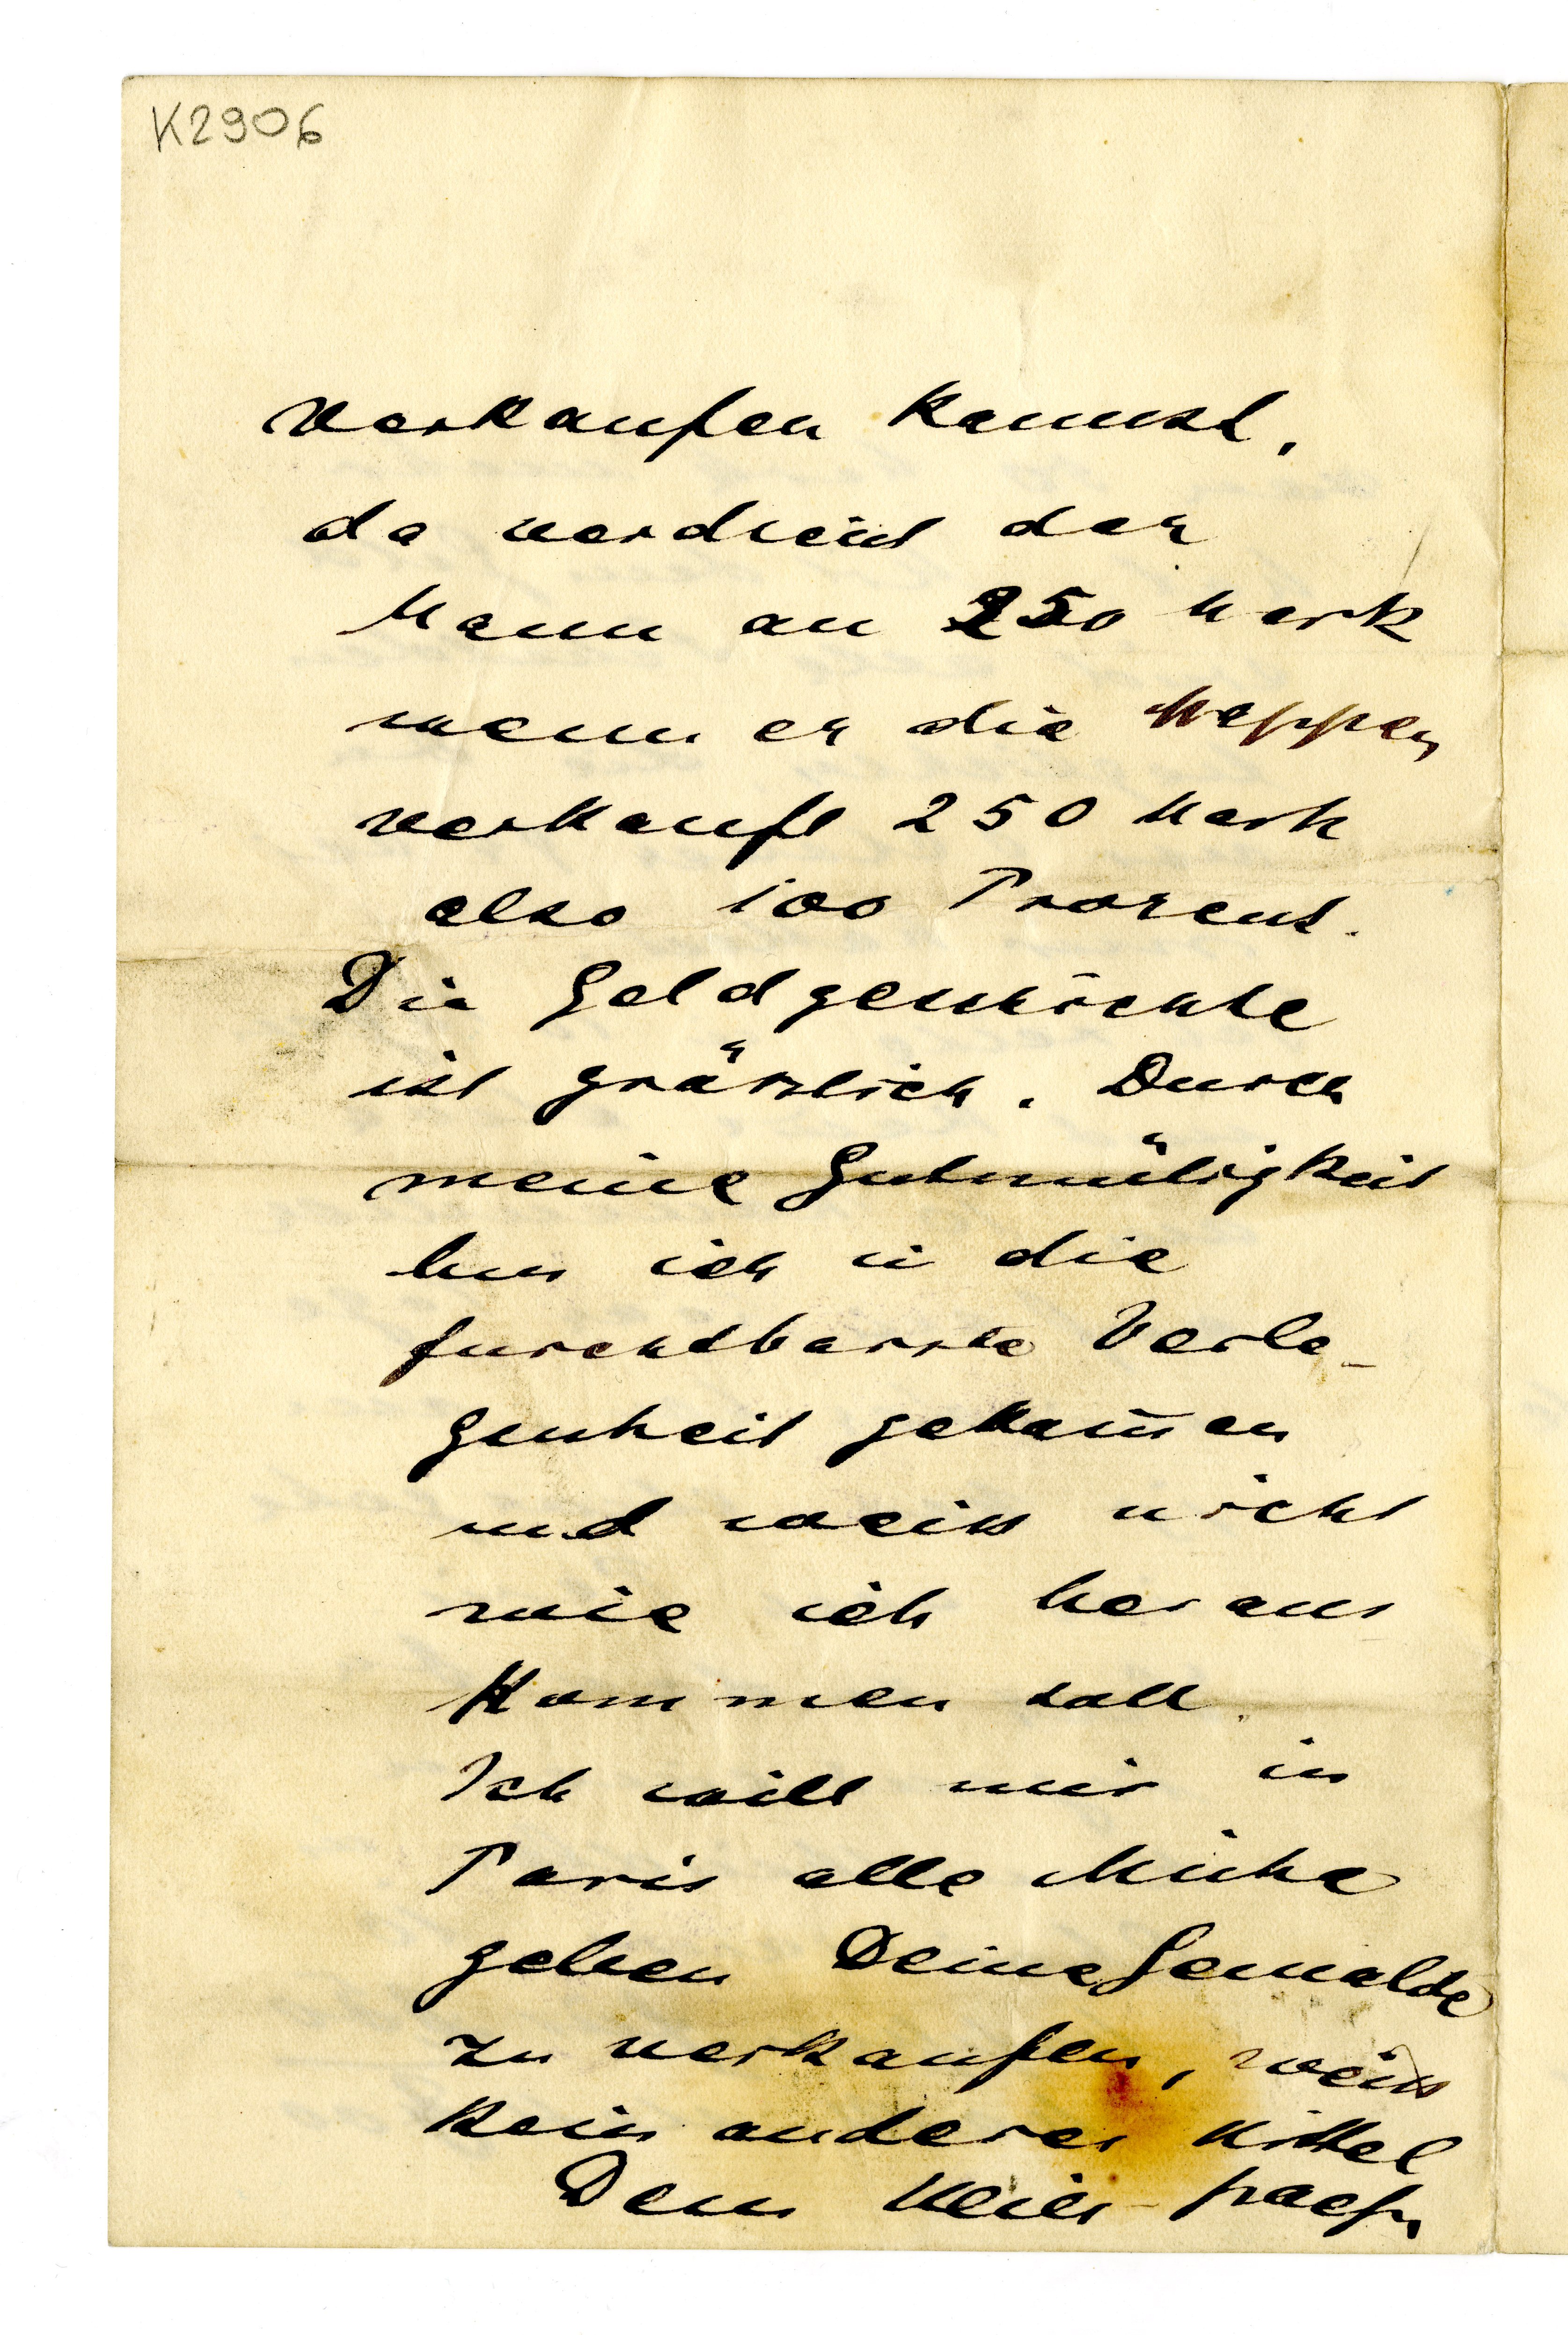 K2906
verkaufen kannst.
da verdient der
Mann an 250 Mark
wenn er die Mappen
verkauft 250 Mark
also 100 Prozent.
Die Geldgeschichte
ist grässlich. Durch
meine Gutmütigkeit
bin ich in die
furchtbarste Verle-
genheit gekom̄en
und weiss nicht
wie ich heraus
kommen soll.
Ich will mir in
Paris alle Mühe
geben Deine Gemälde
zu verkaufen, weiss
kein anderes Mittel
Dem Meier-